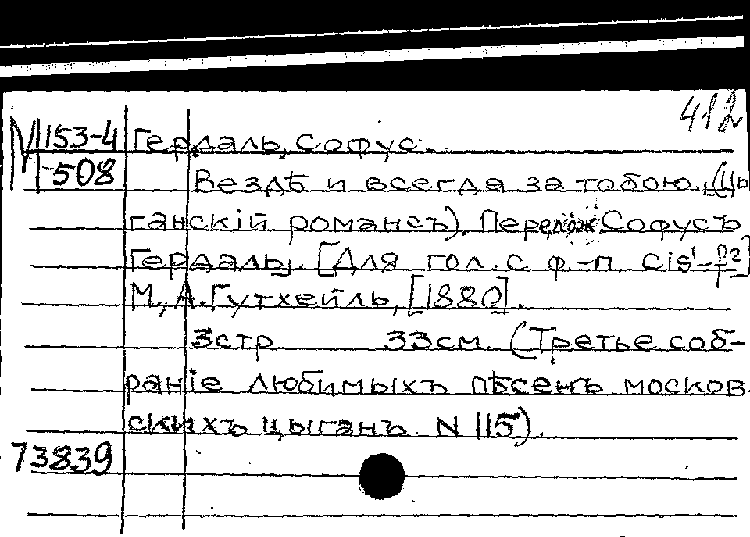 412
М 153-4 Гердаль, Софус.
1-508 Вездѣ и всегда за тобою. (Цы
ганскій романсъ). Перелож. Софусъ
Гердаль. [Для гол. с ф.-п. cis¹-
М., А. Гутхейль, [1880].
3 стр 33 см. (Третье соб-
раніе любимыхъ пѣсенъ москов
скихъ цыганъ. N 115).
73839